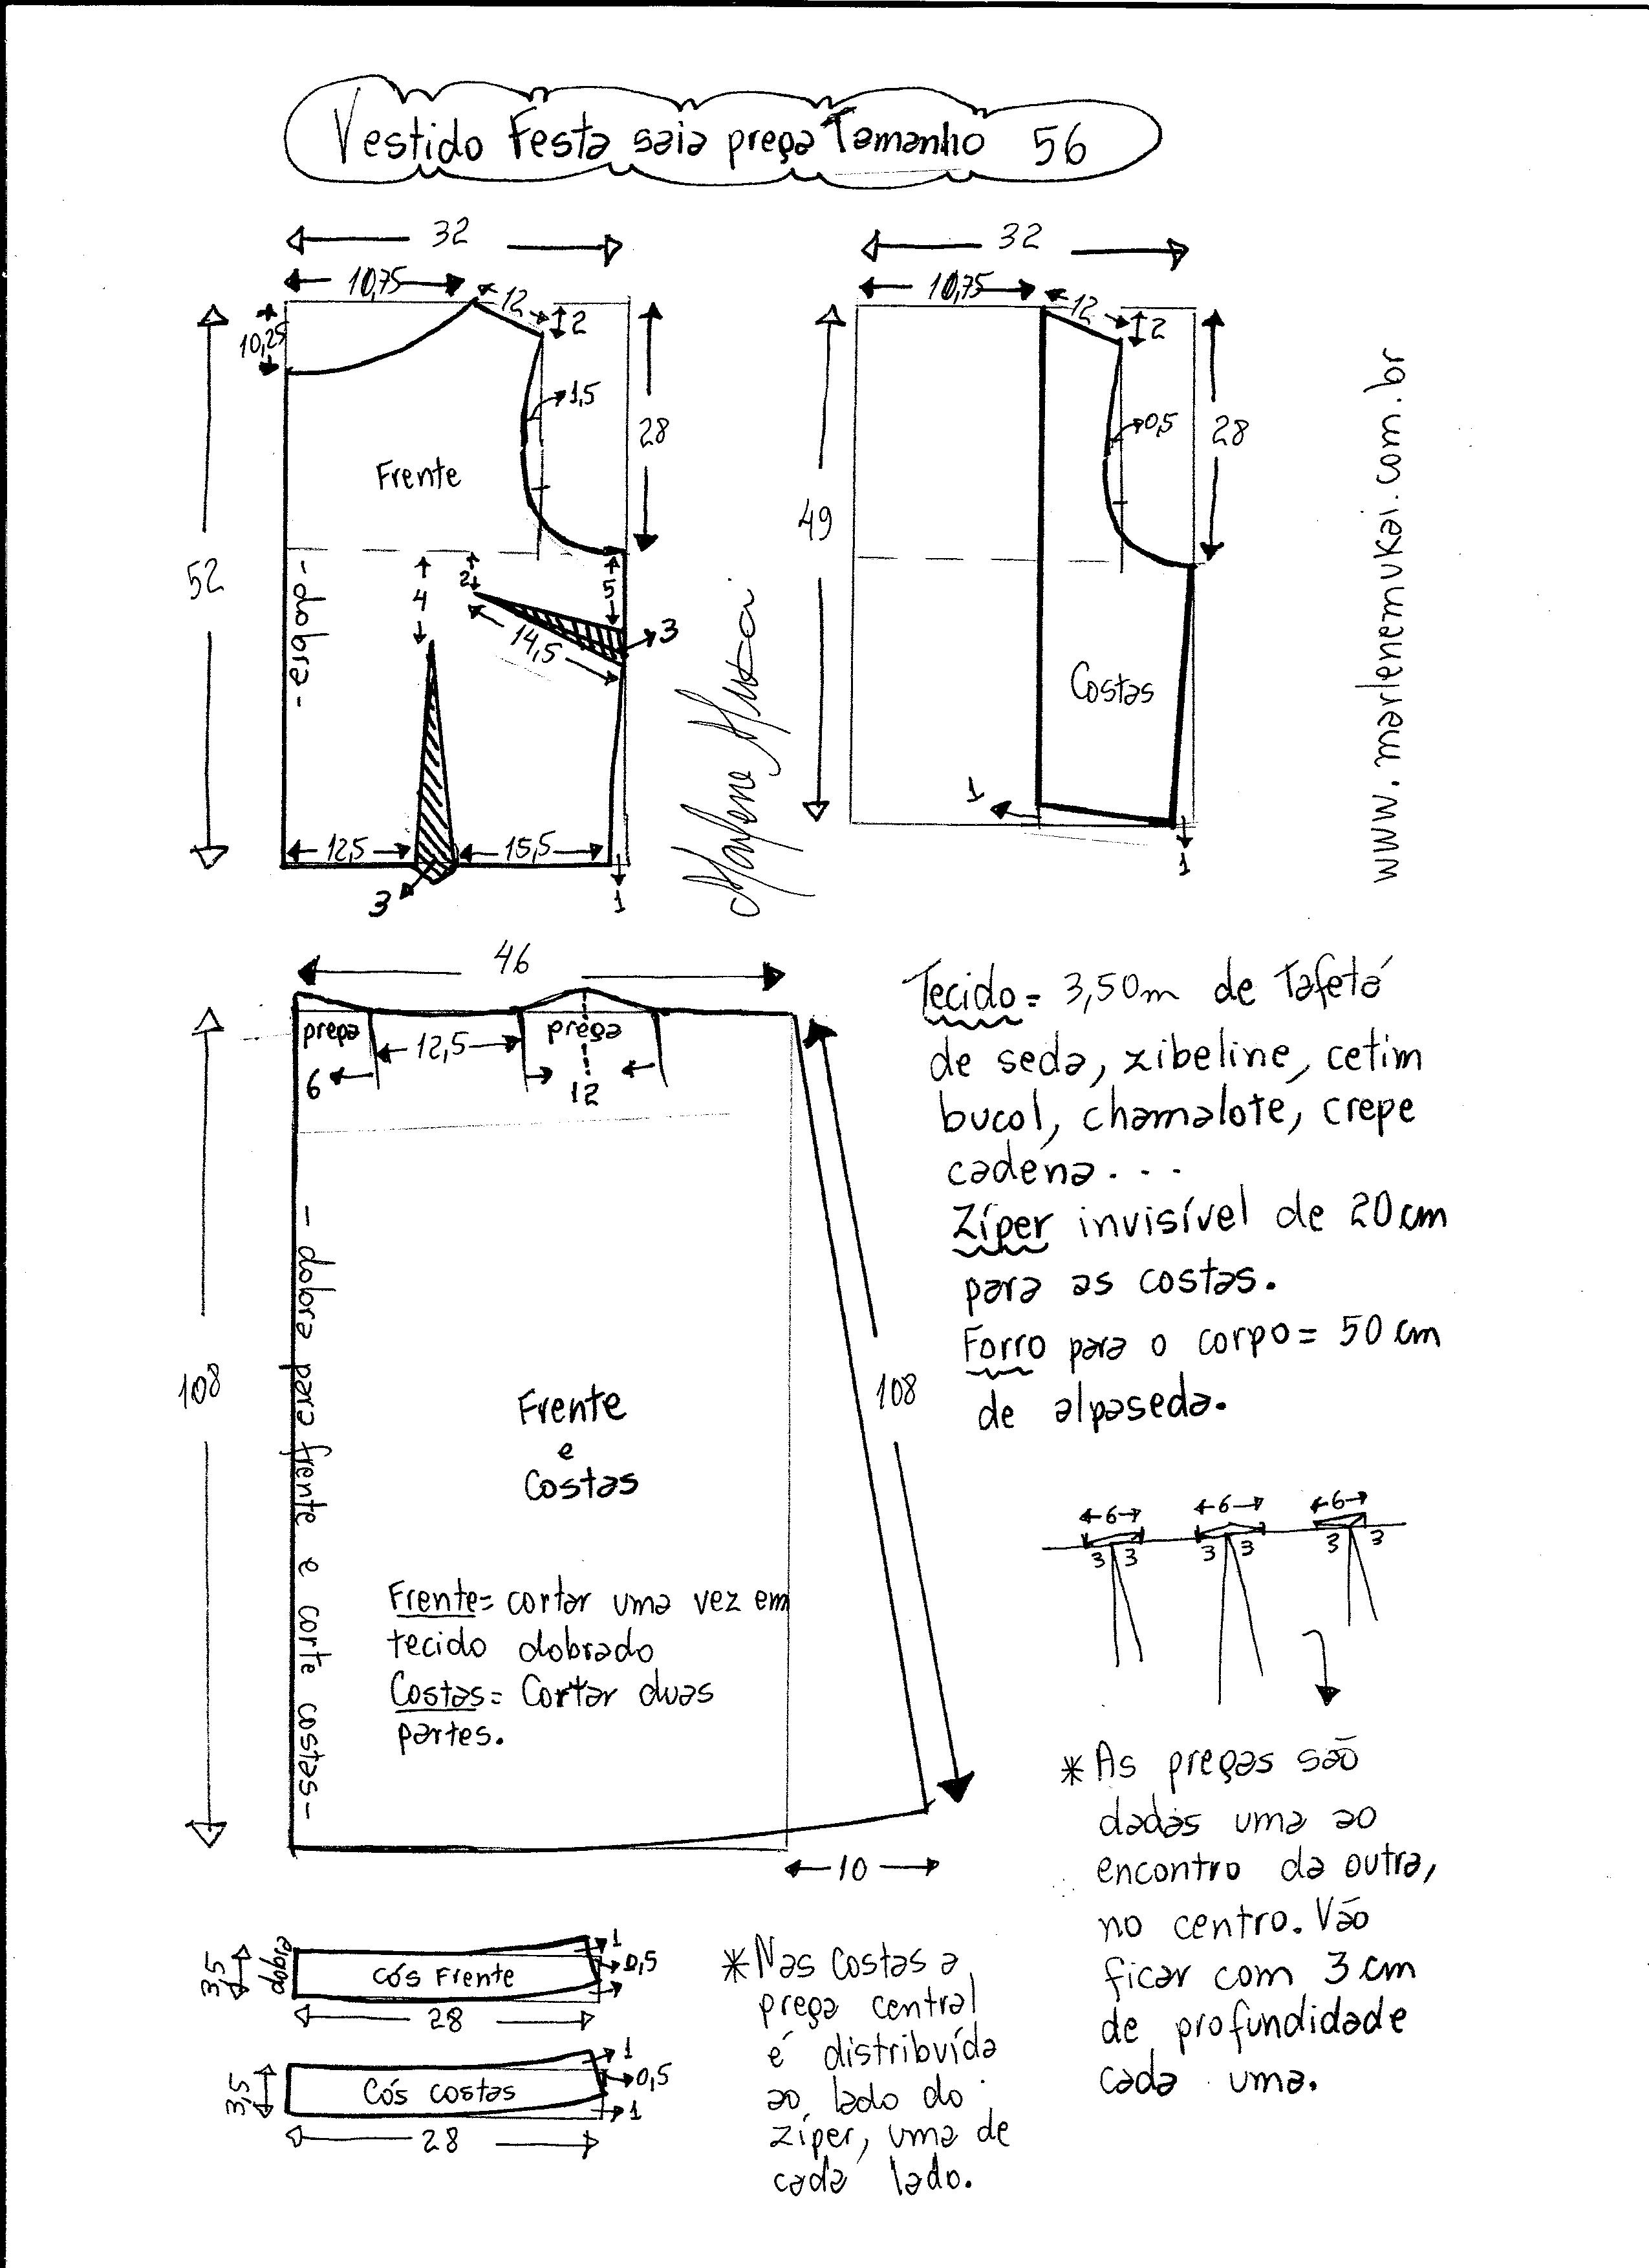 Vestido Festa saia prega Tamanho 56
32
10,75
12
2
10,25
1,5
28
Frente
52
- dobra -
4
2
5
14,5
3
12,5
15,5
3
1
Marlene Mukai
32
10,75
12
2
0,5
28
49
Costas
1
1
www.marlenemukai.com.br
46
prega
12,5
prega
6
12
108
108
- dobra para frente e corte costas -
Frente
e
Costas
Frente= cortar uma vez em
tecido dobrado
Costas= Cortar duas
partes.
10
Tecido= 3,50m de Tafetá
de seda, zibeline, cetim
bucol, chamalote, crepe
cadena...
Zíper invisível de 20cm
para as costas.
Forro para o corpo= 50cm
de alpaseda.
6 6 6
3 3 3 3 3 3
*As pregas são
dadas uma ao
encontro da outra,
no centro. Vão
ficar com 3cm
de profundidade
cada uma.
3,5
dobra
Cós Frente
1
0,5
28
3,5
Cós costas
1
0,5
1
28
*Nas costas a
prega central
é distribuída
ao lado do
zíper, uma de
cada lado.